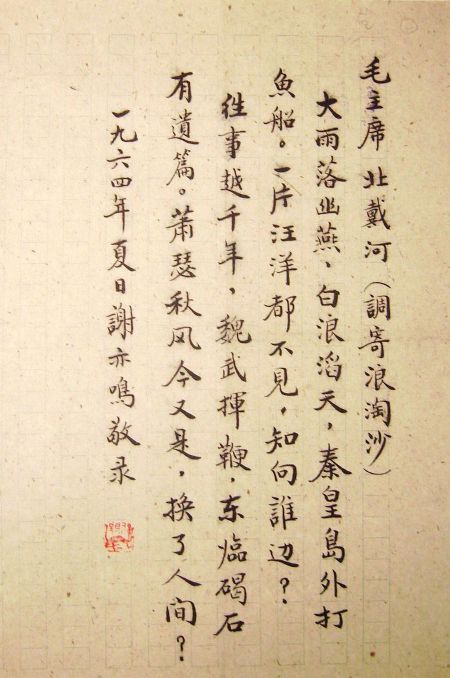 毛主席 北戴河（調寄浪淘沙）
大雨落幽燕，白浪滔天，秦皇島外打
魚船。一片汪洋都不見，知向誰边？
往事越千年，魏武揮鞭，东临碣石
有遺篇。萧瑟秋风今又是，换了人间？
一九六四年夏日謝亦鳴敬录